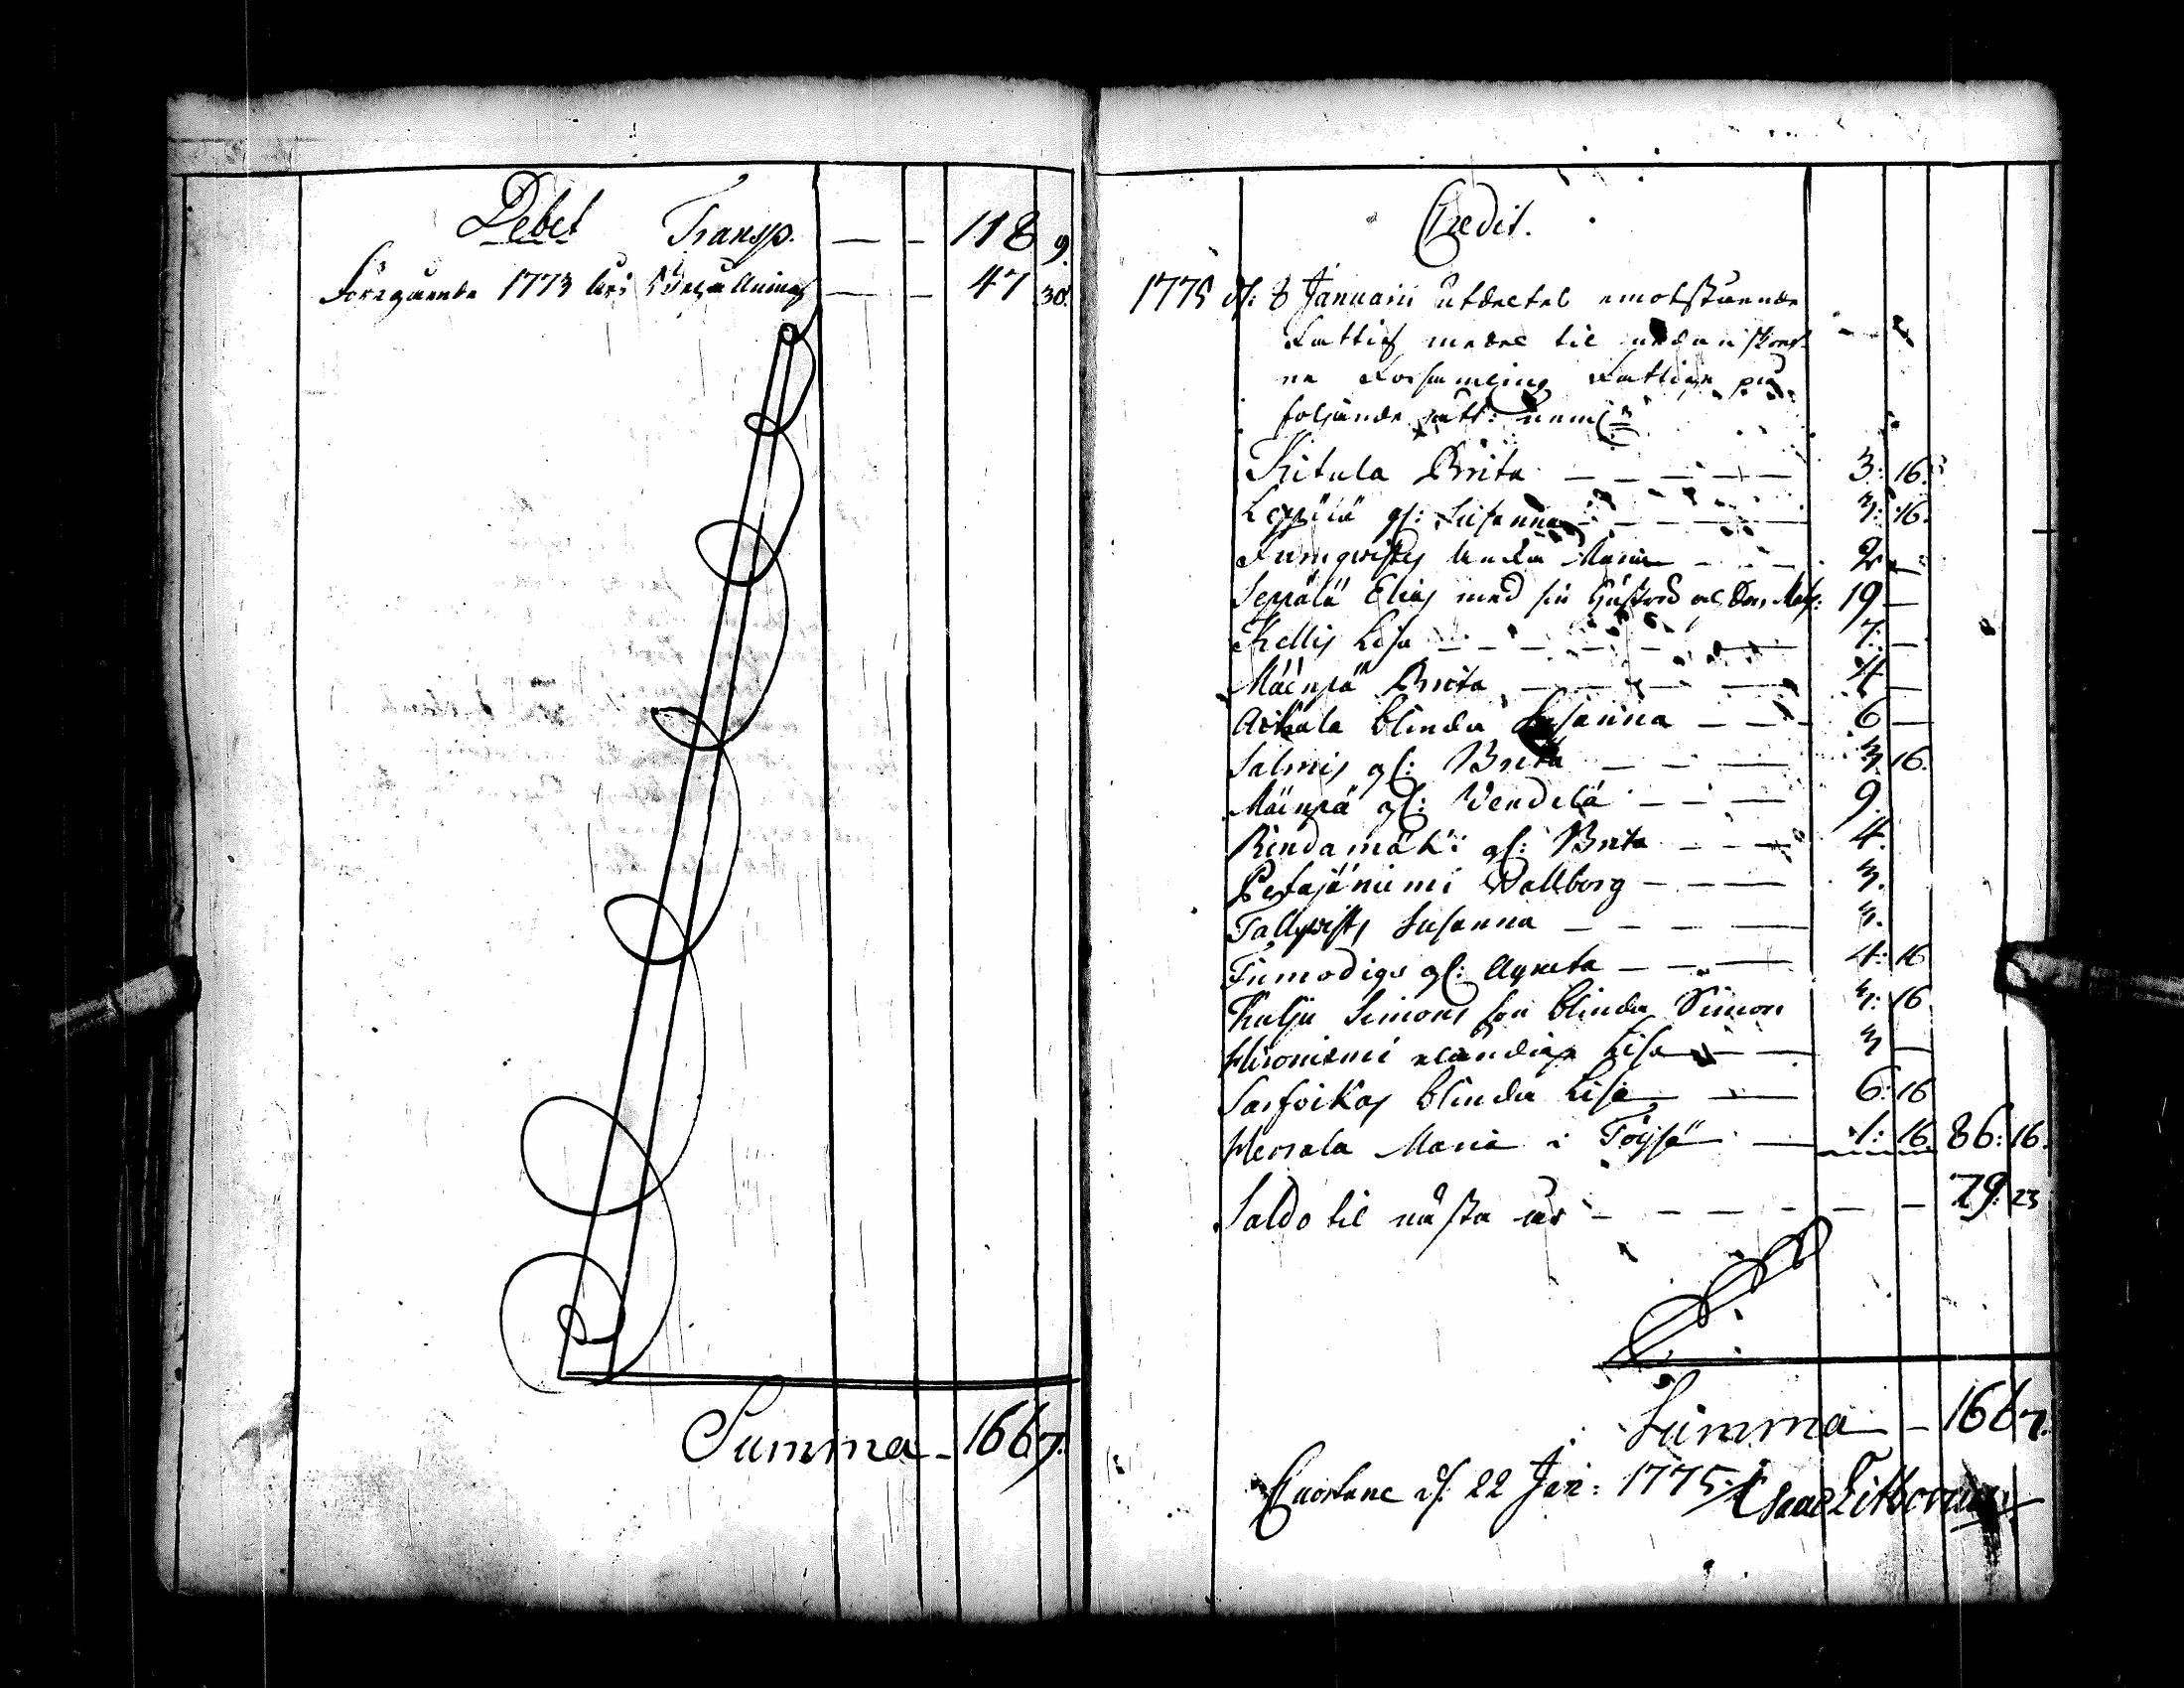 Debet Transp. — – 118 9.
Föregående 1773 års Behållning — – 47 30.
Summa – 166 7.
Credit.
1775 d: 8 Januarii utdeltes emotstående
Fattig medel til
ne Församlings Fattiga på
följande sätt: neml:
Kitula Brita — 3: 16.
Leppälä gl: Susanna — 3: 16.
Enka Maria — 2 —
Seppälä Elias med sin Hustro 19 —
Kellis Lisa — 7: —
Mäenpä Brita — 4 —
Blinda Susanna — 6 —
Salmis gl: Brita — 3. 16.
Mäenpä gl: Vendela — 9.
Rindamäki gl: Brita — 4.
Petajäniemi Wallborg — 3.
Tallqvists Susanna — 3.
gl: Agneta — 4: 16
Kulju Simons son blinda Simon 3: 16
Hironiemi eländiga Lisa — 3 —
Sarfvikas blinda Lisa — 6: 16
Maria i Töysä — 1: 16. 86: 16.
Saldo til nästa år — 79: 23
Summa – 166 7.
Cuortane d: 22 Jan: 1775.